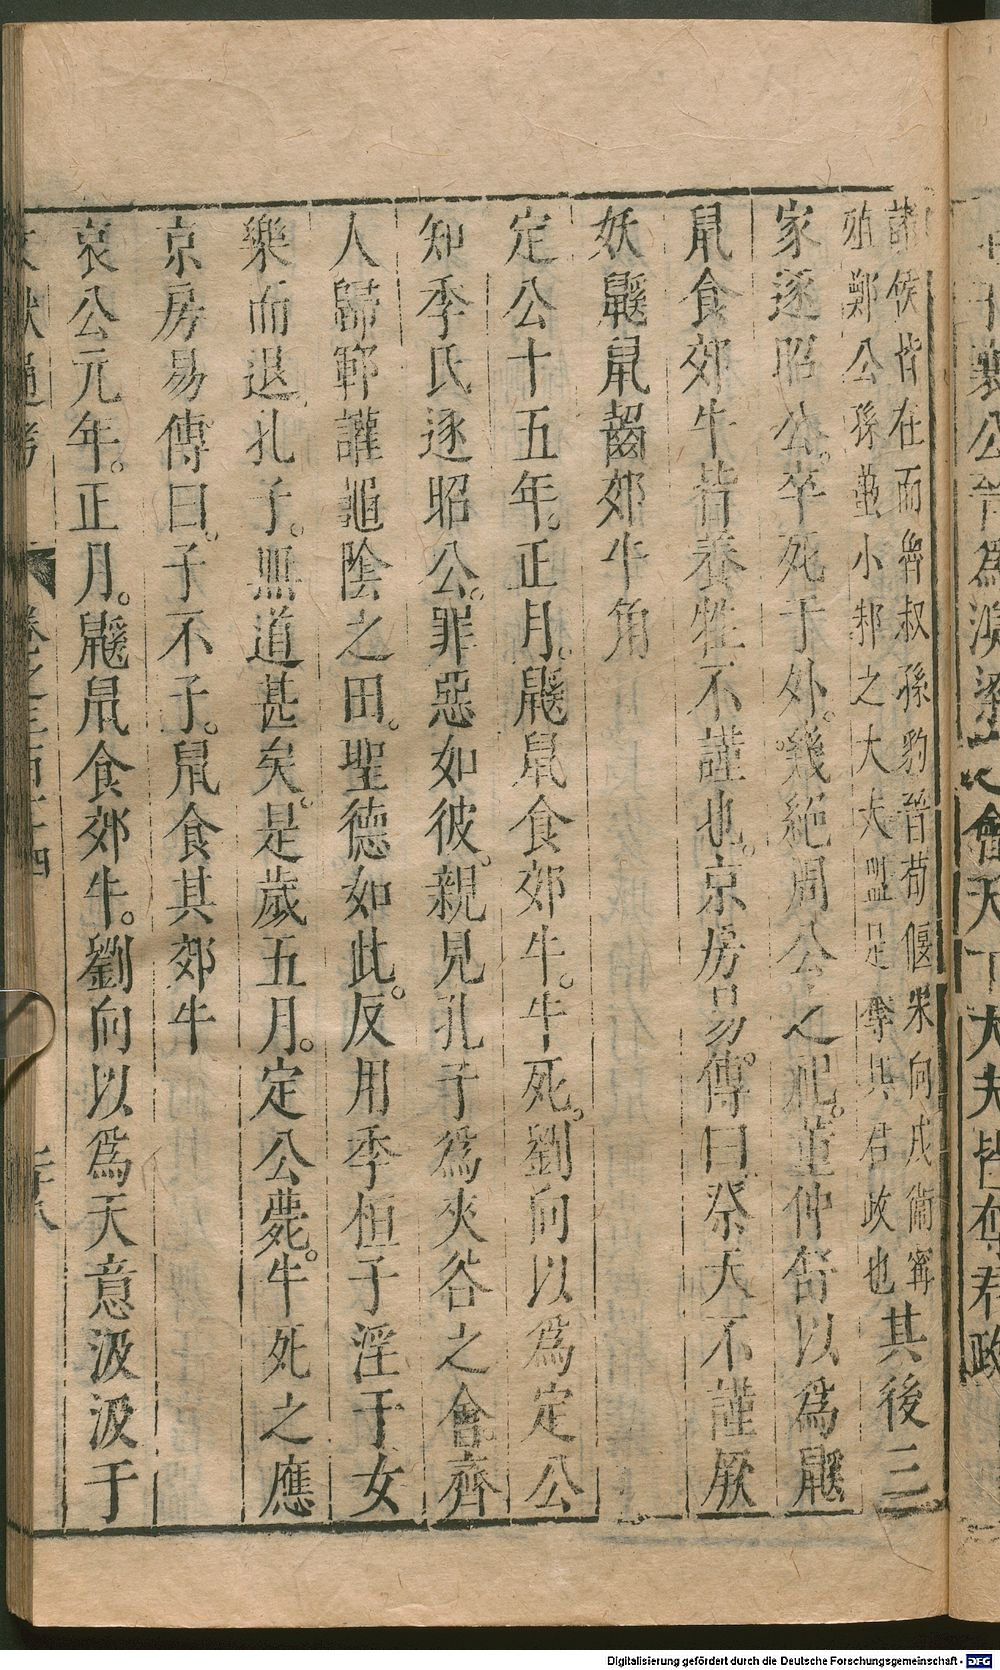 十襄公晉為溴梁之會天下大夫皆奪君政
諸侯皆在而魯叔孫豹晉荀偃宋向戌衛甯
殖鄭公孫蠆小邾之大夫盟是奪其君政也
其後三
家逐昭公。卒死于外。幾絕周公之祀。董仲舒以為鼷
鼠食郊牛皆養牲不謹也。京房易傳曰祭天不謹厥
妖鼷鼠齧郊牛角
定公十五年。正月。鼷鼠食郊牛。牛死。劉向以為定公
知季氏逐昭公。罪惡如彼。親見孔子為夾谷之會。齊
人歸鄆讙龜陰之田。聖德如此。反用季桓子淫于女
樂而退孔子。無道甚矣。是歲五月。定公薨。牛死之應
京房易傳曰。子不子。鼠食其郊牛
哀公元年。正月。鼷鼠食郊牛。劉向以為天意汲汲于
文獻通考
卷之三百十四
Digitalisierung gefördert durch die Deutsche Forschungsgemeinschaft - DFG